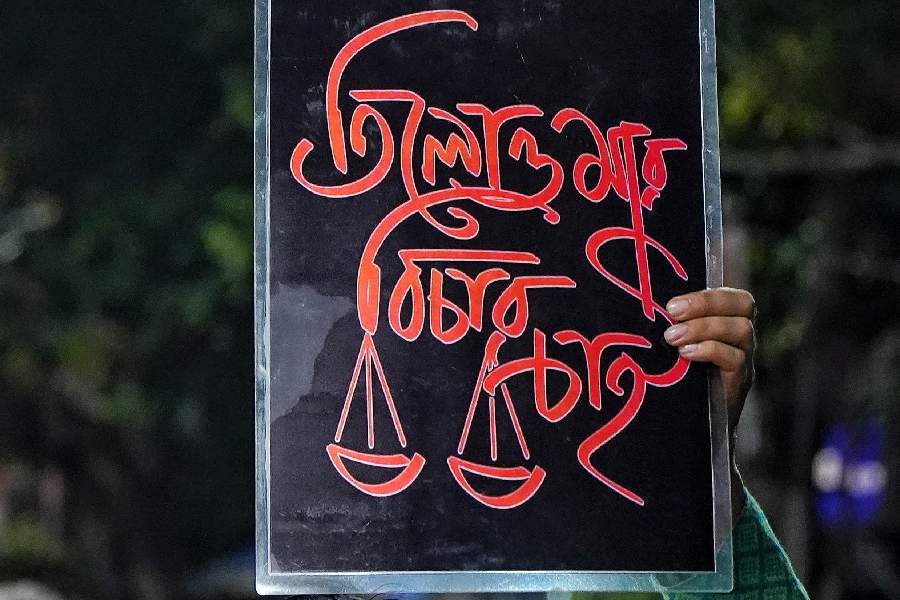 তিলোত্তমার
বিচার
চাই